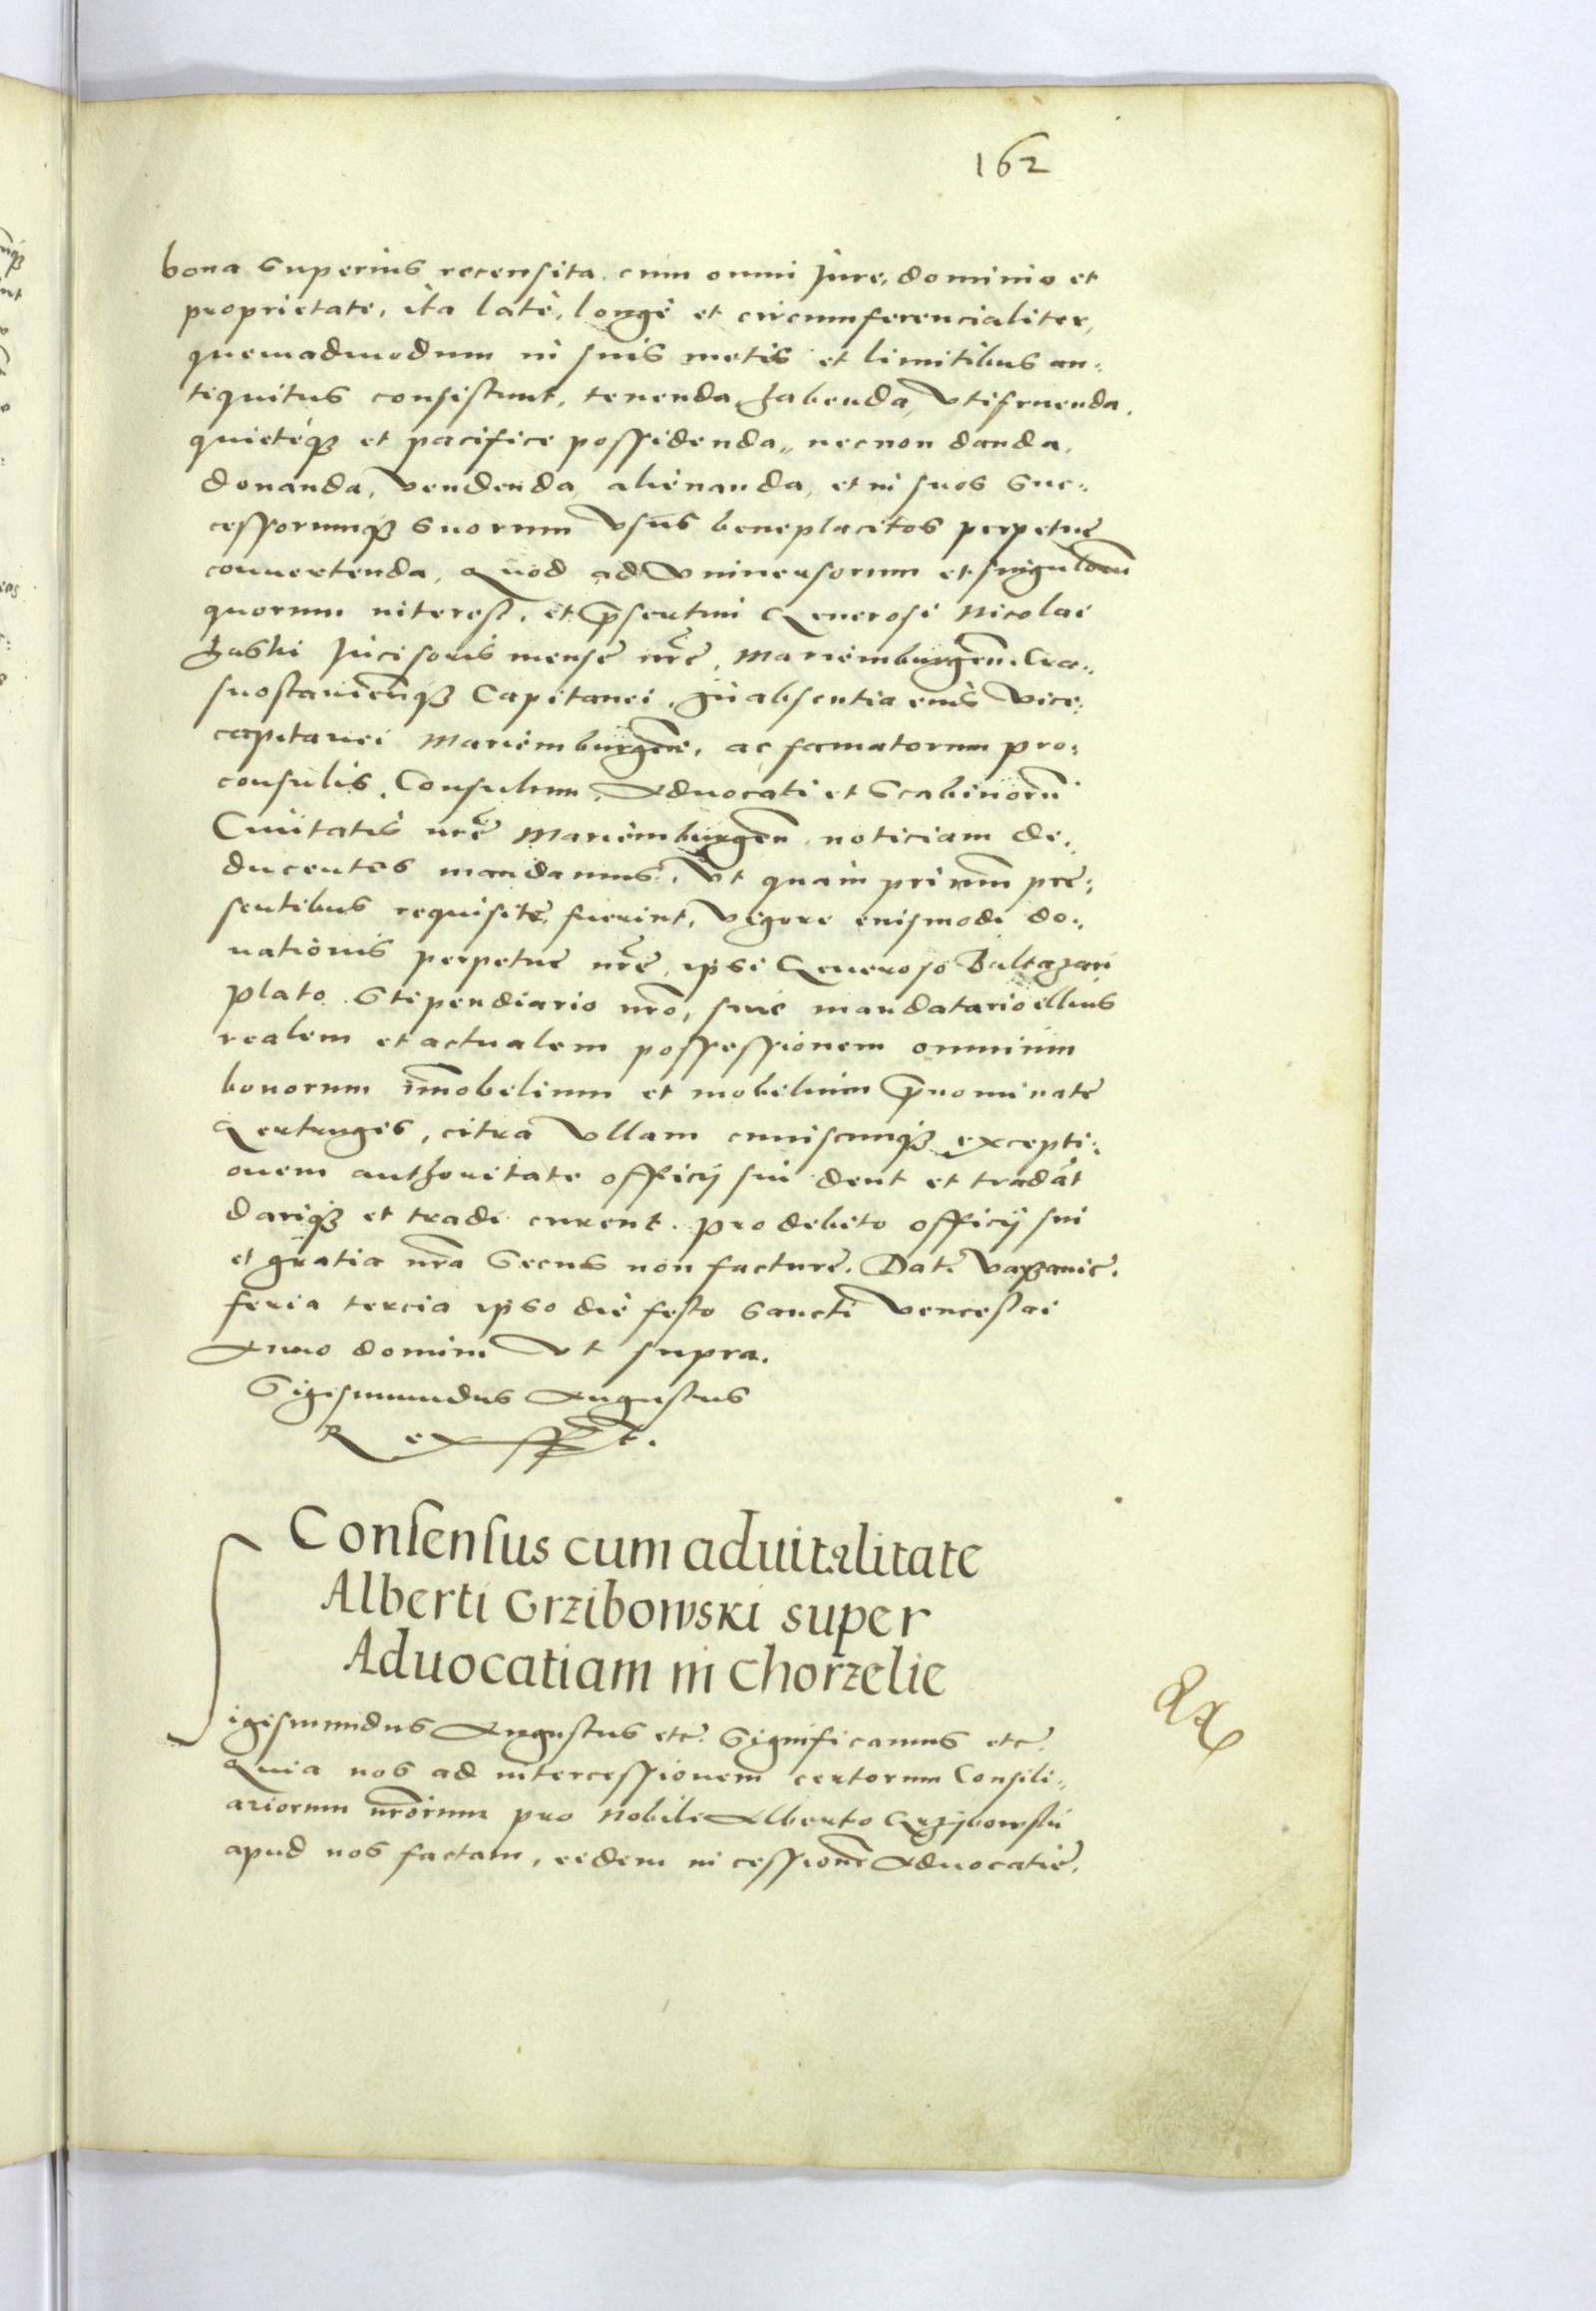 162
bona superius recensita, cum omni Jure, dominio et
proprietate, ita latè, longè et circumferencialiter,
quemadmodum in suis metis et limitibus an-
tiquitus consistunt, tenenda habenda, vtifruenda,
quietéq₃ et pacifice possidenda, necnon danda,
donanda, vendenda, alienanda, et in suos suc-
cessorumq₃ suorum vsus beneplacitos perpetue
conuertenda, Quod ad vniuersorum et singulorũ
quorum interest, et p̃sertim Generosi Nicolai
Incisoris mense nr̃e, Mariemburgeñ.
Capitanei, in absentia eius vice,
capitanei Mariemburgeñ, ac famatorum pro-
consulis, Consulum, Aduocati et Scabinorũ
Ciuitatis nr̃e Mariemburgeñ noticiam de-
ducentes mandamus, vt quam primum pre-
sentibus requisite, fuerint, vigore eiusmodi do-
nationis perpetue nr̃e, ipsi Generoso Baltazari
Plato Stipendiario nr̃o, siue mandatario illius
realem et actualem possessionem omnium
bonorum im̃obilium et mobilium p̃nominate
Gertrugis, citra vllam cuiuscunq₃ excepti-
onem authoritate officij sui dent et tradãt
dariq₃ et tradi curent. pro debito officij sui
et gratia nr̃a secus non facture. Dat.
feria tercia ipso die festo Sancti Venceslai
Anno domini vt supra.
Sigismundus Augustus
Rex sst.
Consensus cum aduitalitate
Alberti Grzibowski super
Aduocatiam in Chorzelie
Sigismundus Augustus etc̃ Significamus etc̃
Quia nos ad intercessionem certorum Consili-
ariorum nr̃orum pro Nobili Alberto Grzybowski
apud nos factam, eidem in cessionẽ Aduocatie,